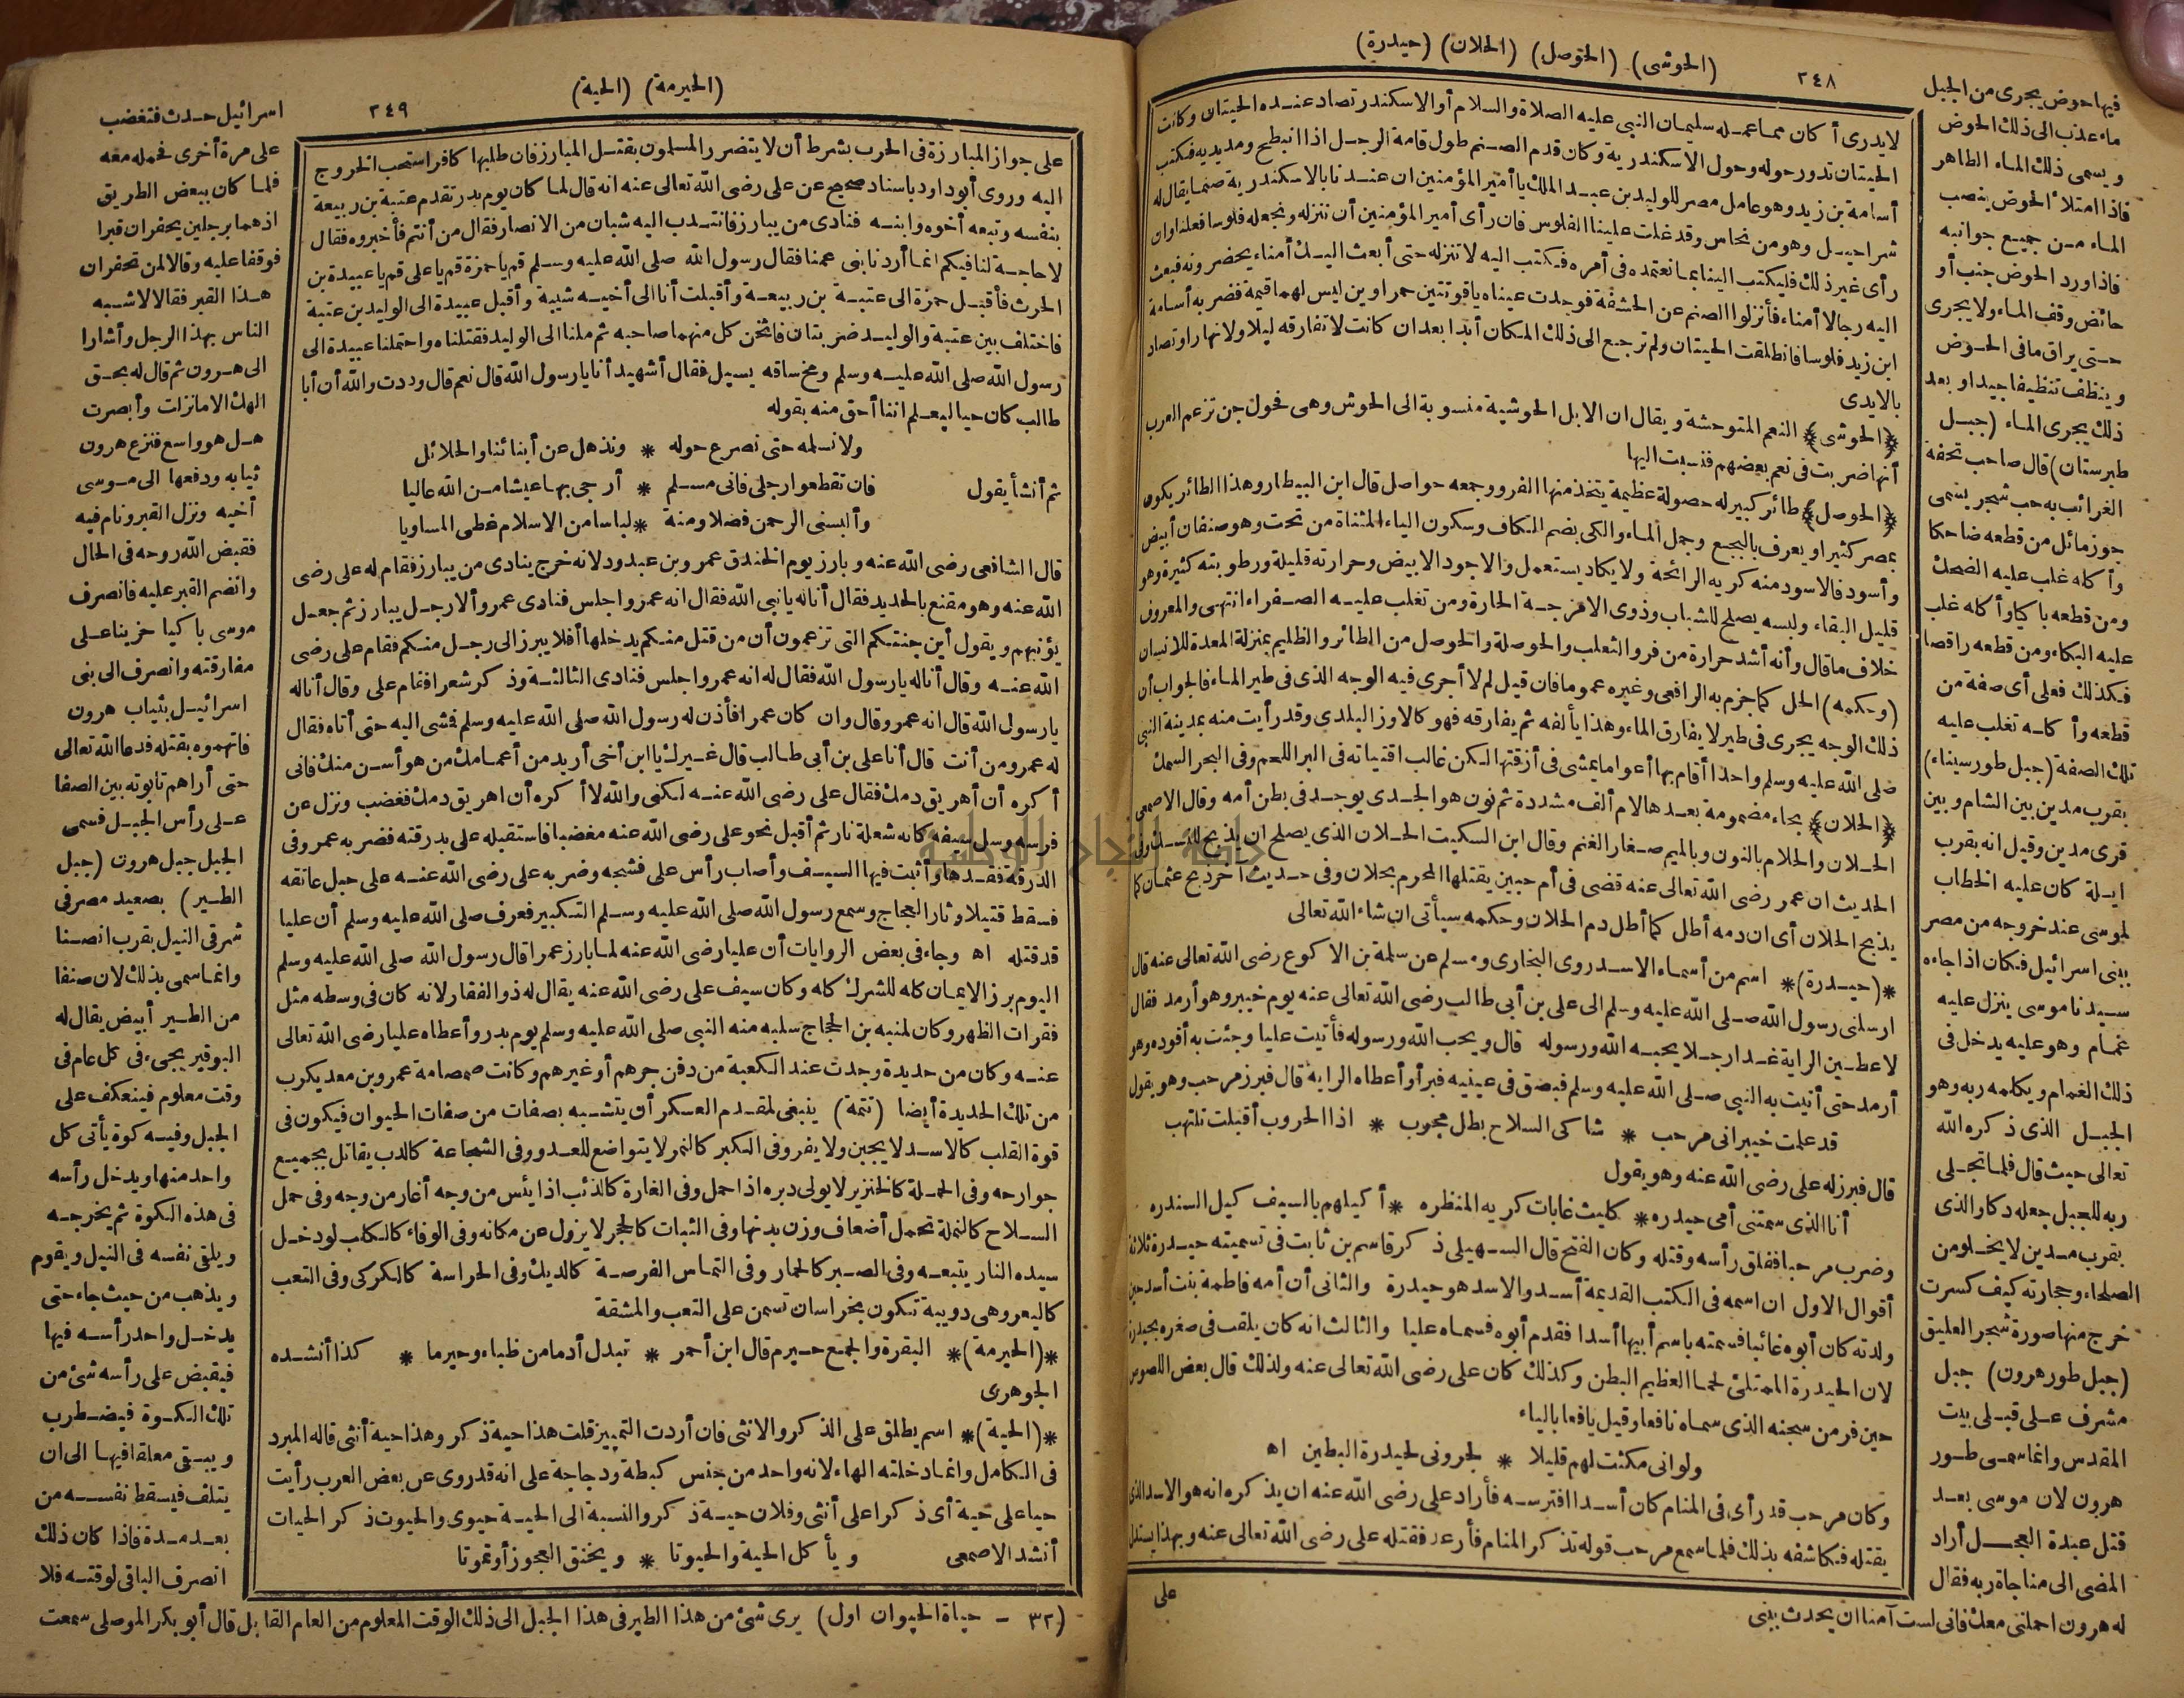 (الحوشى) (الحوصل) (الحلان) (حيدرة)
٢٤٨
لايدرى أ كان مما عمله سليمان النبى عليه الصلاة والسلام أو الاسكندر تصاد عنده الحيتان وكانت
الحيتان تدور حوله وحول الاسكندرية وكان قدم الصنم طول قامة الرجل اذا انبطح ومد يديه فكتب
أسامة بن زيد وهو عامل مصر للوليد بن عبد الملك يا أمير المؤمنين ان عندنا بالاسكندرية صنما يقال له
شراحيل وهو من نحاس وقد غلت علينا الفلوس فان رأى أمير المؤمنين أن ننزله ونجعله فلوسا فعلنا وان
رأى غير ذلك فليكتب الينا بما نعتمده فى أمره فكتب اليه لا تنزله حتى أبعث اليك أمناء يحضرونه فبعث
اليه رجالا أمناء فأنزلوا الصنم عن الحشفة فوجدت عيناه ياقوتتين حمراوين ليس لهما قيمة فضربه أسامة
ابن زيد فلوسا فانطلقت الحيتان ولم ترجع الى ذلك المكان أبدا بعد ان كانت لا تفارقه ليلا ولا نهارا وتصاد
بالايدى
﴿الحوشى﴾ النعم المتوحشة ويقال ان الابل الحوشية منسوبة الى الحوش وهى فحول جن تزعم العرب
أنها ضربت فى نعم بعضهم فنسبت اليها
﴿الحوصل﴾ طائر كبير له حوصلة عظيمة يتخذ منها الفرو وجمعه حواصل قال ابن البيطار وهذا الطائر يكون
بمصر كثيرا ويعرف بالبجع وجمل الماء والكى بضم الكاف وسكون الياء المثناة من تحت وهو صنفان أبيض
وأسود فالاسود منه كريه الرائحة ولا يكاد يستعمل والاجود الابيض وحرارته قليلة ورطوبته كثيرة وهو
قليل البقاء ولبسه يصلح للشباب وذوى الامزجة الحارة ومن تغلب عليه الصفراء انتهى والمعروف
خلاف ما قال وأنه أشد حرارة من فرو الثعلب والحوصلة والحوصل من الطائر والظليم بمنزلة المعدة للانسان
(وحكمه) الحل كما جزم به الرافعى وغيره عموما فان قيل لم لا أجرى فيه الوجه الذى فى طير الماء فالجواب أن
ذلك الوجه يجرى فى طير لا يفارق الماء وهذا يألفه ثم يفارقه فهو كالاوز البلدى وقد رأيت منه بمدينة النبى
صلى الله عليه وسلم واحدا أقام بها أعواما يمشى فى أزقتها لكن غالب اقتياته فى البر اللحم وفى البحر السمك
﴿الحلان﴾ بحاء مضمومة بعدها لام ألف مشددة ثم نون هو الجدى يوجد فى بطن أمه وقال الاصمعى
الحلان والحلام بالنون وبالميم صغار الغنم وقال ابن السكيت الحلان الذى يصلح ان يذبح للنسك وفى
الحديث ان عمر رضى الله تعالى عنه قضى فى أم حبين يقتلها المحرم بحلان وفى حديث آخر ذبح عثمان كما
يذبح الحلان أى ان دمه أطل كما أطل دم الحلان وحكمه سيأتى ان شاء الله تعالى
*(حيدرة)* اسم من أسماء الاسد روى البخارى ومسلم عن سلمة بن الاكوع رضى الله تعالى عنه قال
ارسلنى رسول الله صلى الله عليه وسلم الى على بن أبى طالب رضى الله تعالى عنه يوم خيبر وهو أرمد فقال
لاعطين الراية غدا رجلا يحبه الله ورسوله قال ويحب الله ورسوله فأتيت عليا وجئت به أقوده وهو
أرمد حتى أتيت به النبى صلى الله عليه وسلم فبصق فى عينيه فبرأ وأعطاه الراية قال فبرز مرحب وهو يقول
قد علمت خيبر انى مرحب * شاكى السلاح بطل مجرب * اذا الحروب أقبلت تلتهب
قال فبرز له على رضى الله عنه وهو يقول
أنا الذى سمتنى أمى حيدره * كليث غابات كريه المنظره * أكيلهم بالسيف كيل السندره
وضرب مرحبا ففلق رأسه وقتله وكان الفتح قال السهيلى ذكر قاسم بن ثابت فى تسميته حيدرة ثلاثة
أقوال الاول ان اسمه فى الكتب القديمة أسد والاسد هو حيدرة والثانى أن أمه فاطمة بنت أسد حين
ولدته كان أبوه غائبا فسمته باسم أبيها أسدا فقدم أبوه فسماه عليا والثالث انه كان يلقب فى صغره بحيدرة
لان الحيدرة الممتلئ لحما العظيم البطن وكذلك كان على رضى الله تعالى عنه ولذلك قال بعض اللصوص
حين فر من سجنه الذى سماه نافعا وقيل يافعا بالياء
ولو انى مكثت لهم قليلا * لجرونى لحيدرة البطين اه
وكان مرحب قد رأى فى المنام كان أسدا افترسه فأراد على رضى الله عنه ان يذكره انه هو الاسد الذى
يقتله فكاشفه بذلك فلما سمع مرحب قوله تذكر المنام فأرعد فقتله على رضى الله تعالى عنه وبهذا يستدل
على
فيها حوض يجرى من الجبل
ماء عذب الى ذلك الحوض
ويسمى ذلك الماء الطاهر
فاذا امتلأ الحوض ينصب
الماء من جميع جوانبه
فاذا ورد الحوض جنب أو
حائض وقف الماء ولا يجرى
حتى يراق ما فى الحوض
وينظف تنظيفا جيدا وبعد
ذلك يجرى الماء (جبل
طبرستان) قال صاحب تحفة
الغرائب به حب شجر يسمى
جوز مائل من قطعه ضاحكا
وأكله غلب عليه الضحك
ومن قطعه باكيا وأكله غلب
عليه البكاء ومن قطعه راقصا
فكذلك فعلى أى صفة من
قطعه وأكله تغلب عليه
تلك الصفة (جبل طور سيناء)
بقرب مدين بين الشام وبين
قرى مدين وقيل انه بقرب
ايلة كان عليه الخطاب
لموسى عند خروجه من مصر
ببنى اسرائيل فكان اذا جاءه
سيدنا موسى ينزل عليه
غمام وهو عليه يدخل فى
ذلك الغمام ويكلمه ربه وهو
الجبل الذى ذكره الله
تعالى حيث قال فلما تجلى
ربه للجبل جعله دكا والذى
بقرب مدين لا يخلو من
الصلحاء وحجارته كيف كسرت
خرج منها صورة شجر العليق
(جبل طور هرون) جبل
مشرف على قبلى بيت
المقدس وانما سمى طور
هرون لان موسى بعد
قتل عبدة العجل أراد
المضى الى مناجاة ربه فقال
له هرون احملنى معك فانى لست آمنا ان يحدث ببنى
(الحيرمة) (الحية)
٢٤٩
على جواز المبارزة فى الحرب بشرط أن لا يتضرر المسلمون بقتل المبارز فان طلبها كافر استحب الخروج
اليه وروى أبو داود باسناد صحيح عن على رضى الله تعالى عنه انه قال لما كان يوم بدر تقدم عتبة بن ربيعة
بنفسه وتبعه أخوه وابنه فنادى من يبارز فانتدب اليه شبان من الانصار فقال من أنتم فأخبروه فقال
لا حاجة لنا فيكم انما أردنا بنى عمنا فقال رسول الله صلى الله عليه وسلم قم يا حمزة قم يا على قم يا عبيدة بن
الحرث فأقبل حمزة الى عتبة بن ربيعة وأقبلت أنا الى أخيه شيبة وأقبل عبيدة الى الوليد بن عتبة
فاختلف بين عتبة والوليد ضربتان فاثخن كل منهما صاحبه ثم ملنا الى الوليد فقتلناه واحتملنا عبيدة الى
رسول الله صلى الله عليه وسلم ومخ ساقه يسيل فقال أشهيد أنا يا رسول الله قال نعم قال وددت والله أن أبا
طالب كان حيا ليعلم اننا أحق منه بقوله
ولا نسلمه حتى نصرع حوله * ونذهل عن أبنائنا والحلائل
ثم أنشأ يقول فان تقطعوا رجلى فانى مسلم * أرجى بها عيشا من الله عاليا
وألبسنى الرحمن فضلا ومنة * لباسا من الاسلام غطى المساويا
قال الشافعى رضى الله عنه وبارز يوم الخندق عمرو بن عبدود لانه خرج ينادى من يبارز فقام له على رضى
الله عنه وهو مقنع بالحديد فقال أنا له يا نبى الله فقال انه عمرو اجلس فنادى عمرو ألا رجل يبارز ثم جعل
يؤنبهم ويقول أين جنتكم التى تزعمون أن من قتل منكم يدخلها أفلا يبرز الى رجل منكم فقام على رضى
الله عنه وقال أنا له يا رسول الله فقال له انه عمرو اجلس فنادى الثالثة وذكر شعرا فقام على وقال أنا له
يا رسول الله قال انه عمرو قال وان كان عمرا فأذن له رسول الله صلى الله عليه وسلم فمشى اليه حتى أتاه فقال
له عمرو من أنت قال أنا على بن أبى طالب قال غيرك يا ابن أخى أريد من أعمامك من هو أسن منك فانى
أكره أن أهريق دمك فقال على رضى الله عنه لكنى والله لا أكره أن اهريق دمك فغضب ونزل عن
فرسه وسل سيفه كانه شعلة نار ثم أقبل نحو على رضى الله عنه مغضبا فاستقبله على بدرقته فضربه عمرو فى
الدرقة فقدها وأثبت فيها السيف وأصاب رأس على فشجه وضربه على رضى الله عنه على حبل عاتقه
فسقط قتيلا وثار العجاج وسمع رسول الله صلى الله عليه وسلم التكبير فعرف صلى الله عليه وسلم أن عليا
قد قتله اه وجاء فى بعض الروايات أن عليا رضى الله عنه لما بارز عمرا قال رسول الله صلى الله عليه وسلم
اليوم برز الايمان كله للشرك كله وكان سيف على رضى الله عنه يقال له ذو الفقار لانه كان فى وسطه مثل
فقرات الظهر وكان لمنبه بن الحجاج سلبه منه النبى صلى الله عليه وسلم يوم بدر وأعطاه عليا رضى الله تعالى
عنه وكان من حديدة وجدت عند الكعبة من دفن جرهم أو غيرهم وكانت صمصامة عمرو بن معد يكرب
من تلك الحديدة أيضا (تتمة) ينبغى لمقدم العسكر أن يتشبه بصفات من صفات الحيوان فيكون فى
قوة القلب كالاسد لا يجبن ولا يفر وفى الكبر كالنمر لا يتواضع للعدو وفى الشجاعة كالدب يقاتل بجميع
جوارحه وفى الحملة كالخنزير لا يولى دبره اذا حمل وفى الغارة كالذئب اذا يئس من وجه أغار من وجه وفى حمل
السلاح كالنملة تحمل أضعاف وزن بدنها وفى الثبات كالحجر لا يزول عن مكانه وفى الوفاء كالكلب لو دخل
سيده النار يتبعه وفى الصبر كالحمار وفى التماس الفرصة كالديك وفى الحراسة كالكركى وفى التعب
كاليعر وهى دويبة تكون بخراسان تسمن على التعب والمشقة
*(الحيرمة)* البقرة والجمع حيرم قال ابن أحمر * تبدل أدما من ظباء وحيرما * كذا أنشده
الجوهرى
*(الحية)* اسم يطلق على الذكر والانثى فان أردت التمييز قلت هذا حية ذكر وهذا حية أنثى قاله المبرد
فى الكامل وانما دخلته الهاء لانه واحد من جنس كبطة ودجاجة على انه قد روى عن بعض العرب رأيت
حيا على حية أى ذكرا على أنثى وفلان حية ذكر والنسبة الى الحية حيوى والحيوت ذكر الحيات
أنشد الاصمعى ويأكل الحية والحيوتا * ويخنق العجوز أو تموتا
اسرائيل حدث فتغضب
على مرة أخرى فحمله معه
فلما كان ببعض الطريق
اذ هما برجلين يحفران قبرا
فوقفا عليه وقالا لمن تحفران
هذا القبر فقالا لاشبه
الناس بهذا الرجل وأشارا
الى هرون ثم قال له بحق
الهك الا ما نزلت وأبصرت
هل هو واسع فنزع هرون
ثيابه ودفعها الى موسى
أخيه ونزل القبر ونام فيه
فقبض الله روحه فى الحال
وانضم القبر عليه فانصرف
موسى باكيا حزينا على
مفارقته وانصرف الى بنى
اسرائيل بثياب هرون
فاتهموه بقتله فدعا الله تعالى
حتى أراهم تابوته بين الصفا
على رأس الجبل فسمى
الجبل جبل هرون (جبل
الطير) بصعيد مصر فى
شرقى النيل بقرب انصنا
وانما سمى بذلك لان صنفا
من الطير أبيض يقال له
البوقير يجىء فى كل عام فى
وقت معلوم فينعكف على
الجبل وفيه كوة يأتى كل
واحد منها ويدخل رأسه
فى هذه الكوة ثم يخرجه
ويلقى نفسه فى النيل ويقوم
ويذهب من حيث جاء حتى
يدخل واحد رأسه فيها
فيقبض على رأسه شئ من
تلك الكوة فيضطرب
ويبقى معلقا فيها الى ان
يتلف فيسقط نفسه من
بعد مدة فاذا كان ذلك
انصرف الباقى لوقته فلا
(٣٢ - حياة الحيوان اول) يرى شئ من هذا الطير فى هذا الجبل الى ذلك الوقت المعلوم من العام القابل قال أبو بكر الموصلى سمعت
جامعة النجاح الوطنية